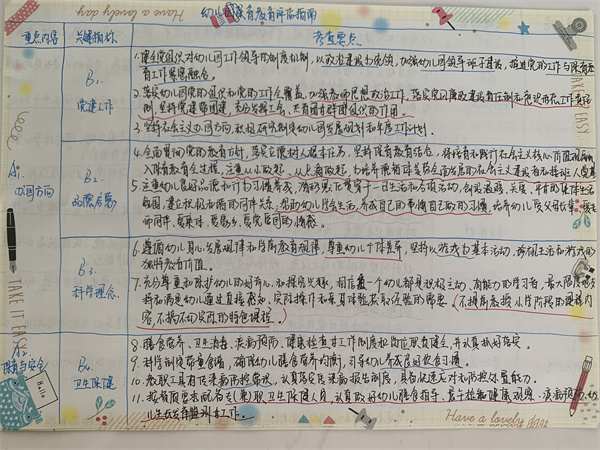 Have a lovely day
幼儿园保育教育评估指南
重点内容
关键指标
考查要点
A1.
办园方向
B1.
党建工作
1. 健全党组织对幼儿园工作领导的制度机制,以政治建设为统领,加强幼儿园领导班子建设,推进党的工作与保育教
育工作紧密融合。
2. 落实幼儿园党的组织和党的工作全覆盖,加强教师思想政治工作,落实党风廉政建设责任制和意识形态工作责任
制,坚持党建带团建,充分发挥工会、共青团等群团组织的作用。
3. 坚持社会主义办园方向,积极研究制定幼儿园发展规划和年度工作计划。
B2.
品德启蒙
4. 全面贯彻党的教育方针,落实立德树人根本任务,坚持保育教育结合,将培育和践行社会主义核心价值观融
入保育教育全过程,注重从小做起、从点滴做起,为培养德智体美劳全面发展的社会主义建设者和接班人奠基
5. 注重幼儿良好品德和行为习惯养成,潜移默化贯穿于一日生活和各项活动,创设温暖、关爱、平等的集体生活
氛围,建立积极和谐的同伴关系;帮助幼儿学会生活,养成自己的事情自己做的习惯,培养幼儿爱父母长辈、爱老
师同伴、爱集体、爱家乡、爱党爱国的情感。
B3.
科学理念
6. 遵循幼儿身心发展规律和学前教育规律,尊重幼儿个体差异,坚持以游戏为基本活动,珍视生活和游戏的
独特教育价值。
7. 充分尊重和保护幼儿的好奇心和探究兴趣,相信每一个幼儿都是积极主动、有能力的学习者,最大限度地支
持和满足幼儿通过直接感知、实际操作和亲身体验获取经验的需要。(不提前教授小学阶段的课程内
容,不搞不切实际的特色课程。)
A2.
保育与安全
B4.
卫生保健
8. 膳食营养、卫生消毒、疾病预防、健康检查等工作制度和岗位职责健全,并认真抓好落实。
9. 科学制定带量食谱,确保幼儿膳食营养均衡,引导幼儿养成良好饮食习惯。
10. 教职工具有传染病防控常识,认真落实传染病报告制度,具备快速应对和防控处置能力。
11. 按资质要求配备专(兼)职卫生保健人员,认真做好幼儿膳食指导、晨午检和健康观察、疾病预防、幼
儿生长发育监测等工作。
TAKE IT EASY
TAKE IT EASY
Hello
Have a lovely day